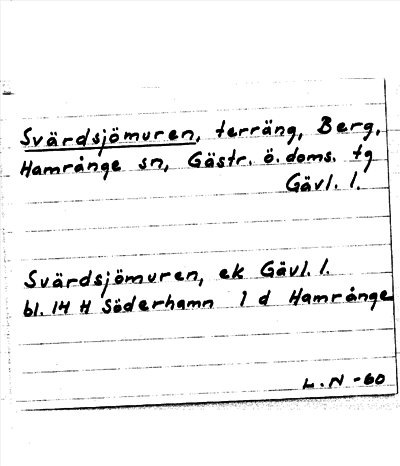 Svärdsjömuren, terräng, Berg,
Hamrånge sn, Gästr. ö. doms. tg
Gävl. l.
Svärdsjömuren, ek Gävl. l.
bl. 14 H Söderhamn 1 d Hamrånge
L. N -60